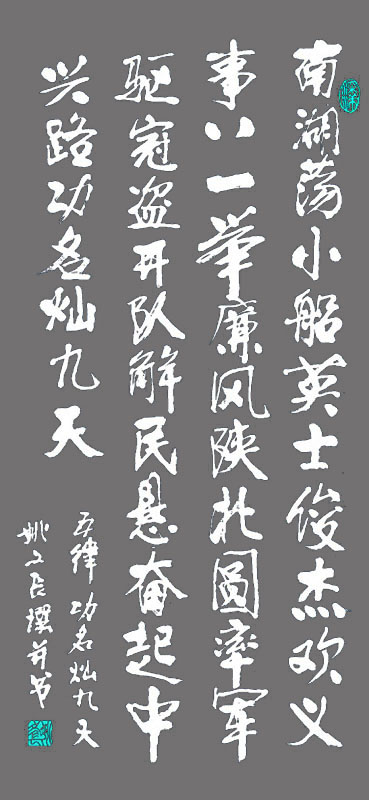 南湖荡小船英士俊杰欢义
事八一举廉风陕北圖率军
驱寇盗队解民悬奋起中
兴路功名灿九天
五律 功名灿九天
姚文臣撰并书